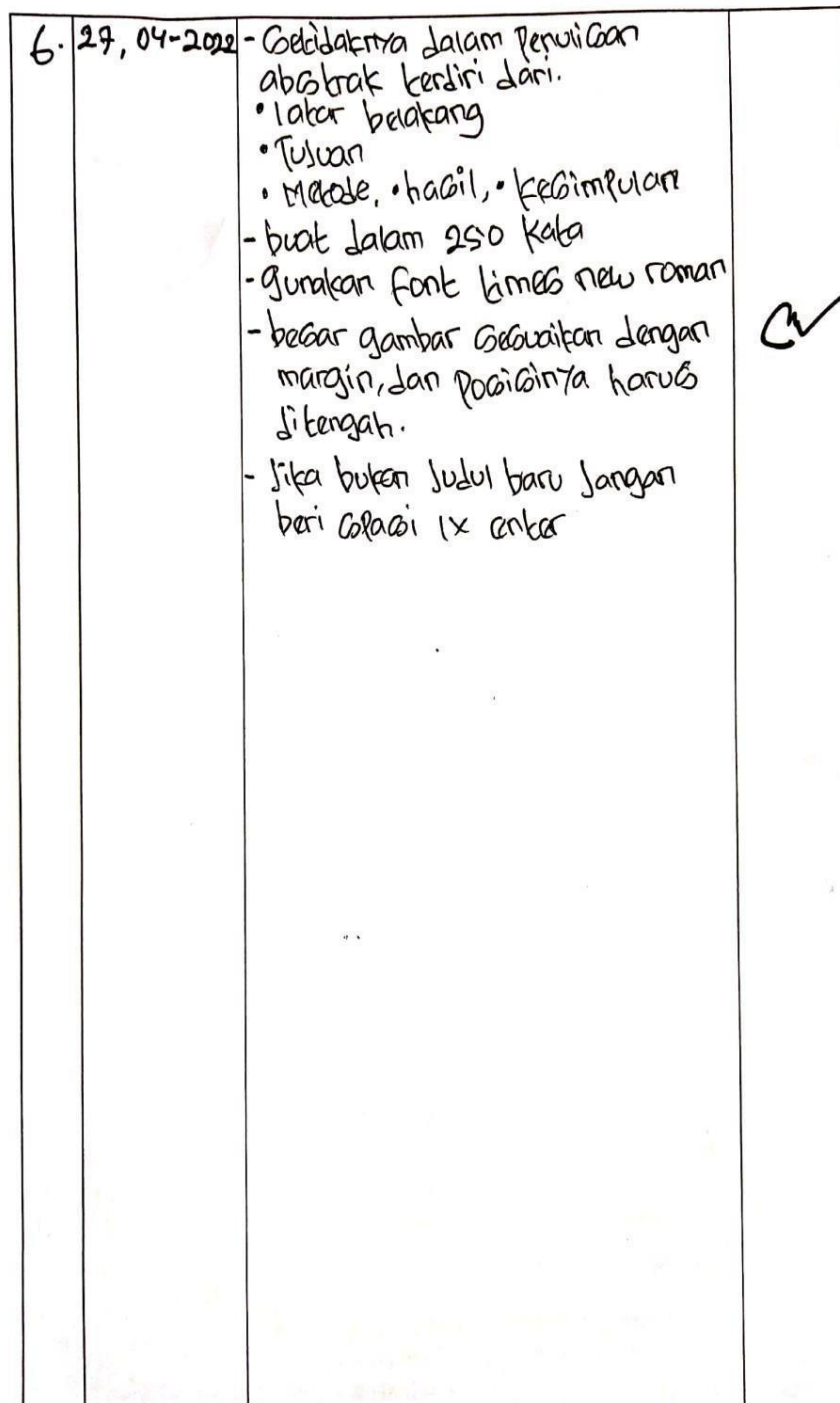 6. 27, 04-2022 - Setidaknya dalam Penulisan
abstrak terdiri dari.
• latar belakang
• Tujuan
• Metode, • hasil, • kesimpulan
- buat dalam 250 kata
- gunakan font times new roman
- besar gambar sesuaikan dengan
margin, dan posisinya harus
ditengah.
- Jika bukan Judul baru Jangan
beri spasi 1x enter